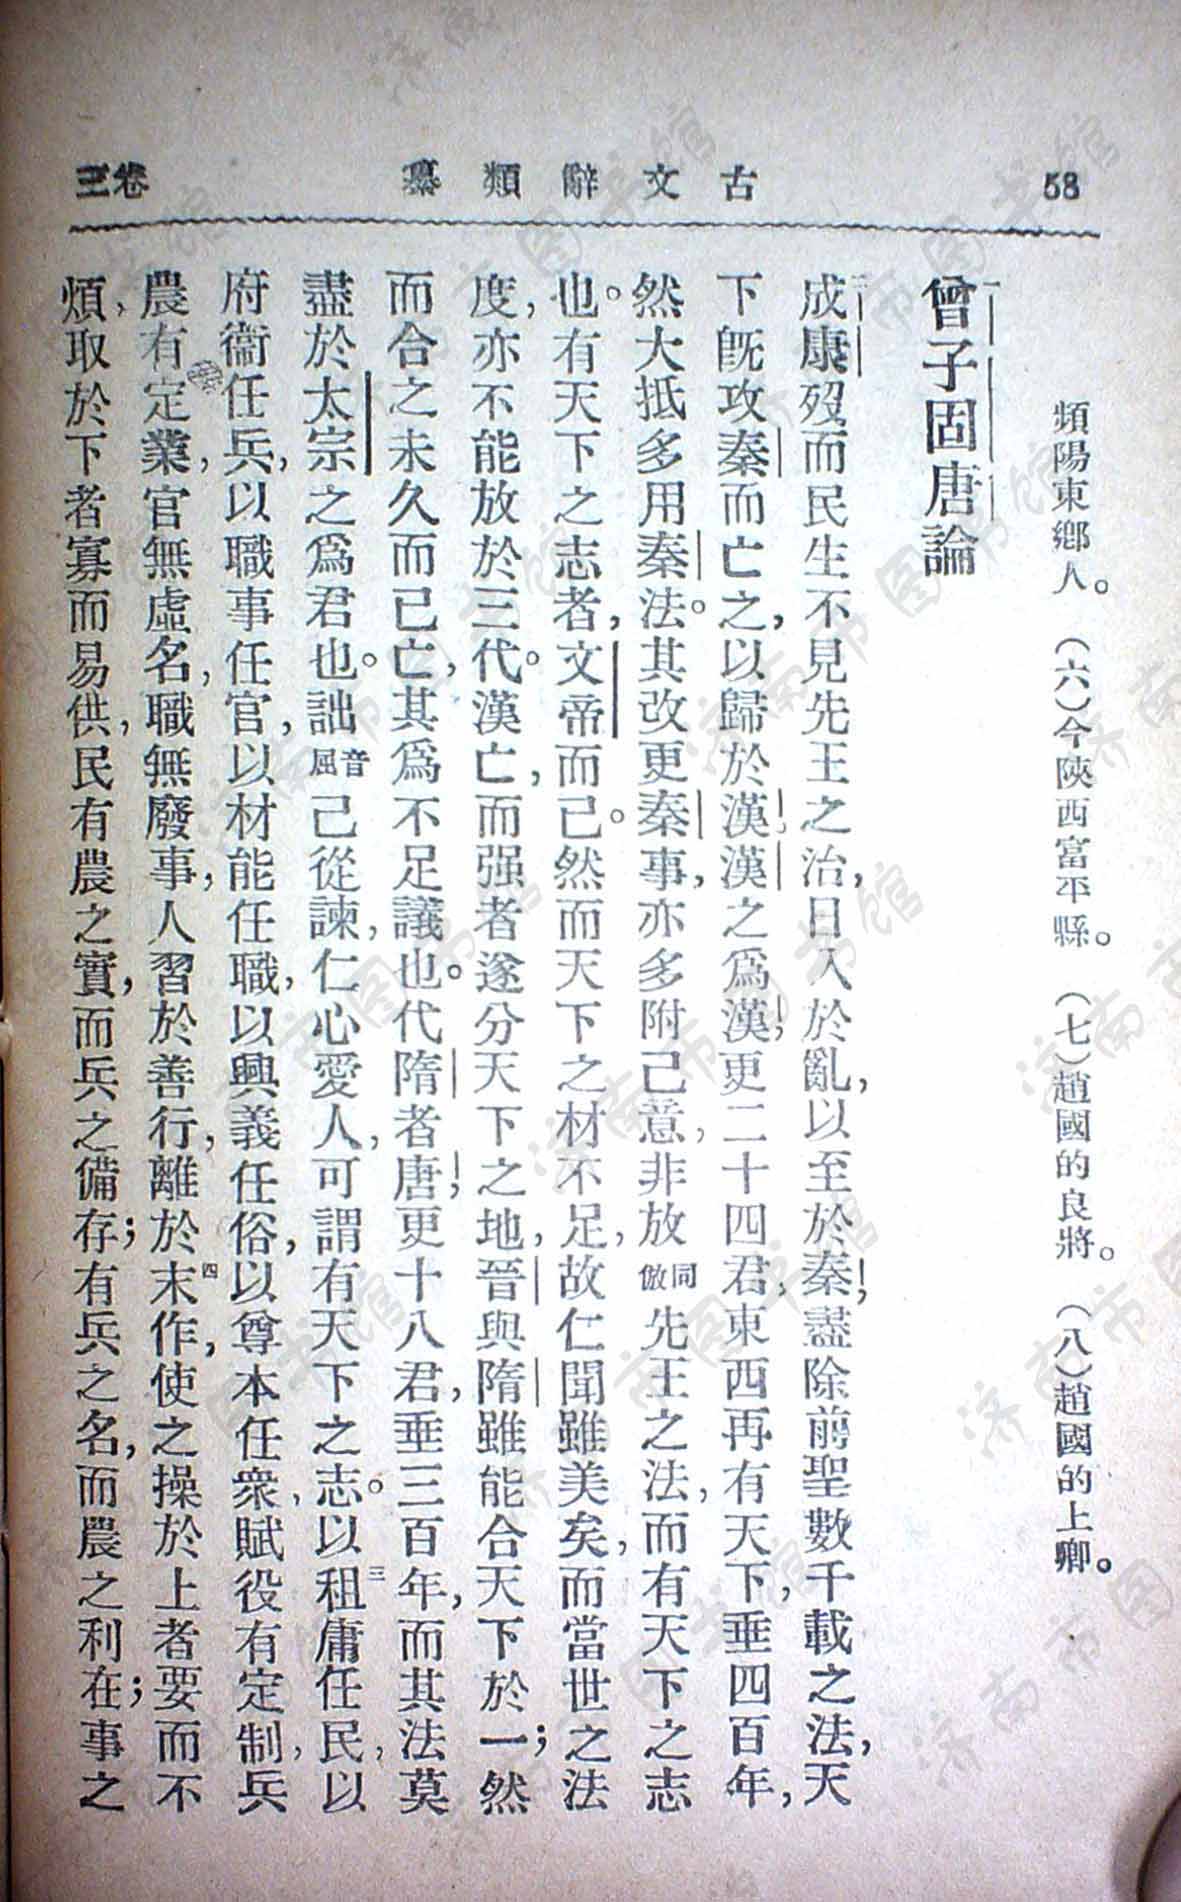 58
古文辭類纂
卷三
頻陽東鄉人。（六）今陝西富平縣。（七）趙國的良將。（八）趙國的上卿。
曾子固唐論
成康歿而民生不見先王之治，日入於亂，以至於秦，盡除前聖數千載之法，天
下旣攻秦而亡之，以歸於漢，漢之爲漢，更二十四君，東西再有天下，垂四百年，
然大抵多用秦法。其改更秦事，亦多附己意，非放同倣先王之法，而有天下之志
也。有天下之志者，文帝而已。然而天下之材不足，故仁聞雖美矣，而當世之法
度，亦不能放於三代。漢亡，而强者遂分天下之地，晉與隋雖能合天下於一；然
而合之未久而已亡，其爲不足議也。代隋者唐，更十八君，垂三百年，而其法莫
盡於太宗之爲君也。詘音屈己從諫，仁心愛人，可謂有天下之志。以租三庸任民，以
府衞任兵，以職事任官，以材能任職，以興義任俗，以尊本任衆，賦役有定制，兵
農有定業，官無虛名，職無廢事，人習於善行，離於末四作，使之操於上者要而不
煩，取於下者寡而易供，民有農之實，而兵之備存；有兵之名，而農之利在；事之
济南市图书馆